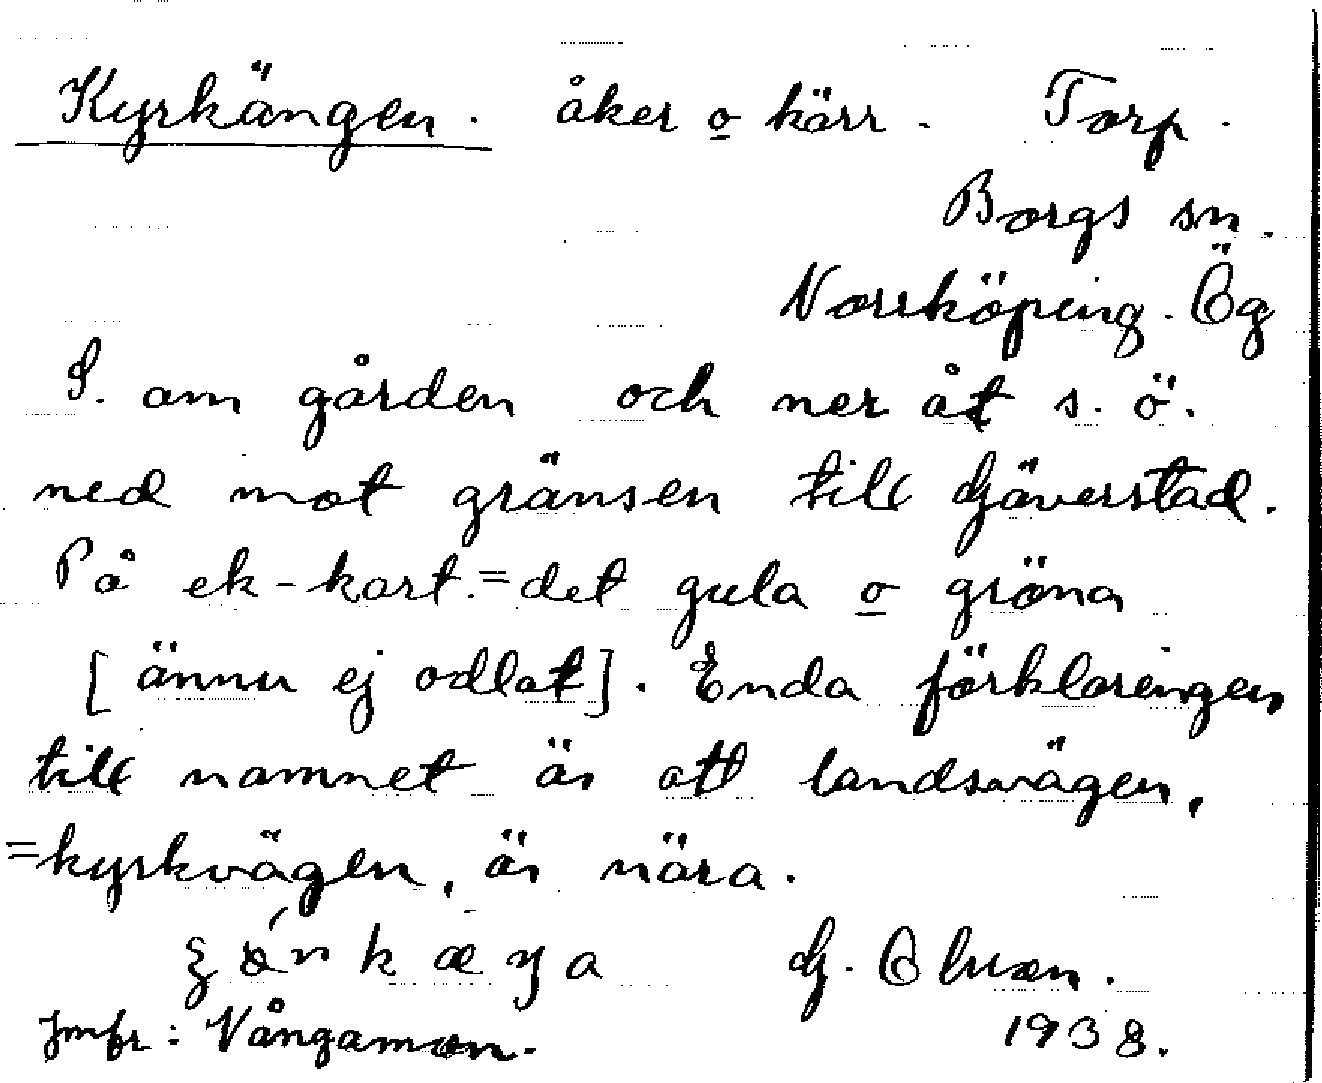 Kyrkängen. åker o kärr. Torp.
Borgs sn.
Norrköping. Ög
S. om gården och ner åt s. ö.
ned mot gränsen till Gäverstad.
På ek-kart. = det gula o gröna
[ännu ej odlat]. Enda förklaringen
till namnet är att landsvägen,
=kyrkvägen, är nära.
G. Olson.
Jmfr: Vångamon.
1938.